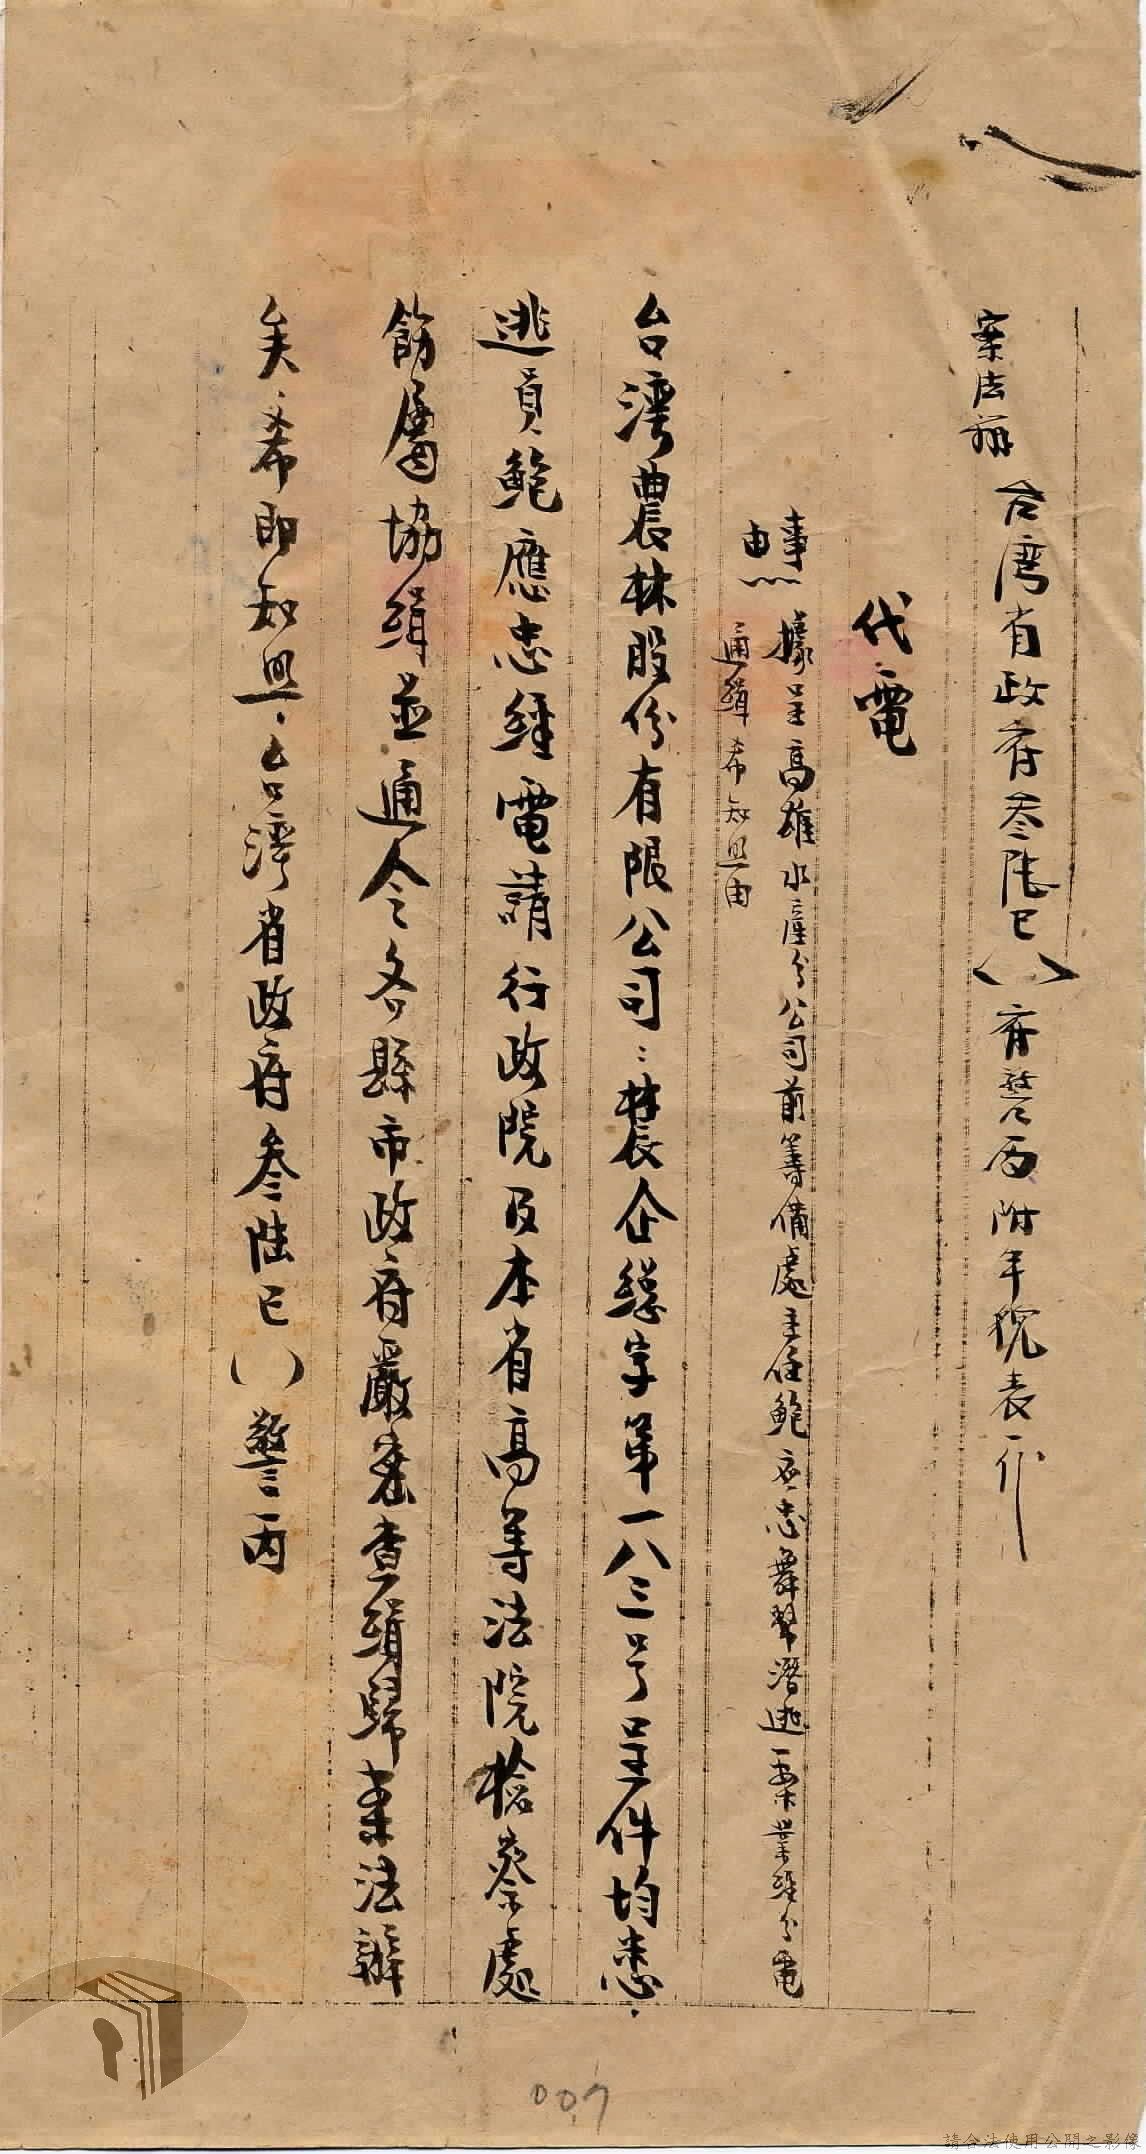 案法辦
台湾省政府叁陸巳( )府警丙附年貌表一份
代電
事由
據呈高雄水產分公司前籌備處主任鮑应忠舞弊潛逃一案業經分電
通緝希知照由
台灣農林股份有限公司：農企總字第一八三号呈件均悉．
逃員鮑應忠經電請行政院及本省高等法院檢察處
飭屬協緝並通令各縣市政府嚴密查緝歸案法辦
矣．希即知照．台灣省政府叁陸巳( )警丙
007
請合法使用公開之影像